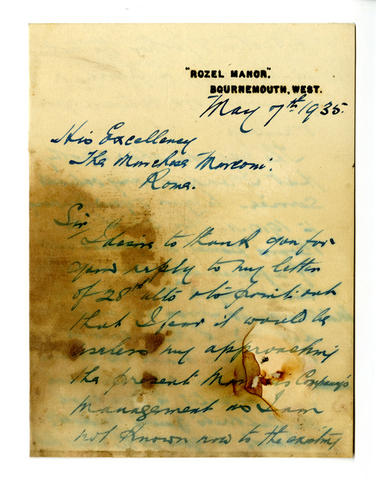 "ROZEL MANOR,"
BOURNEMOUTH, WEST.
May 7th 1935.
His Excellency
The Marchese Marconi.
Rome.
Sir
I desire to thank you for
your reply to my letter
of 28th ulto & to point out
that I fear it would be
useless my approaching
the present Company's
management as I am
not known now to the existing